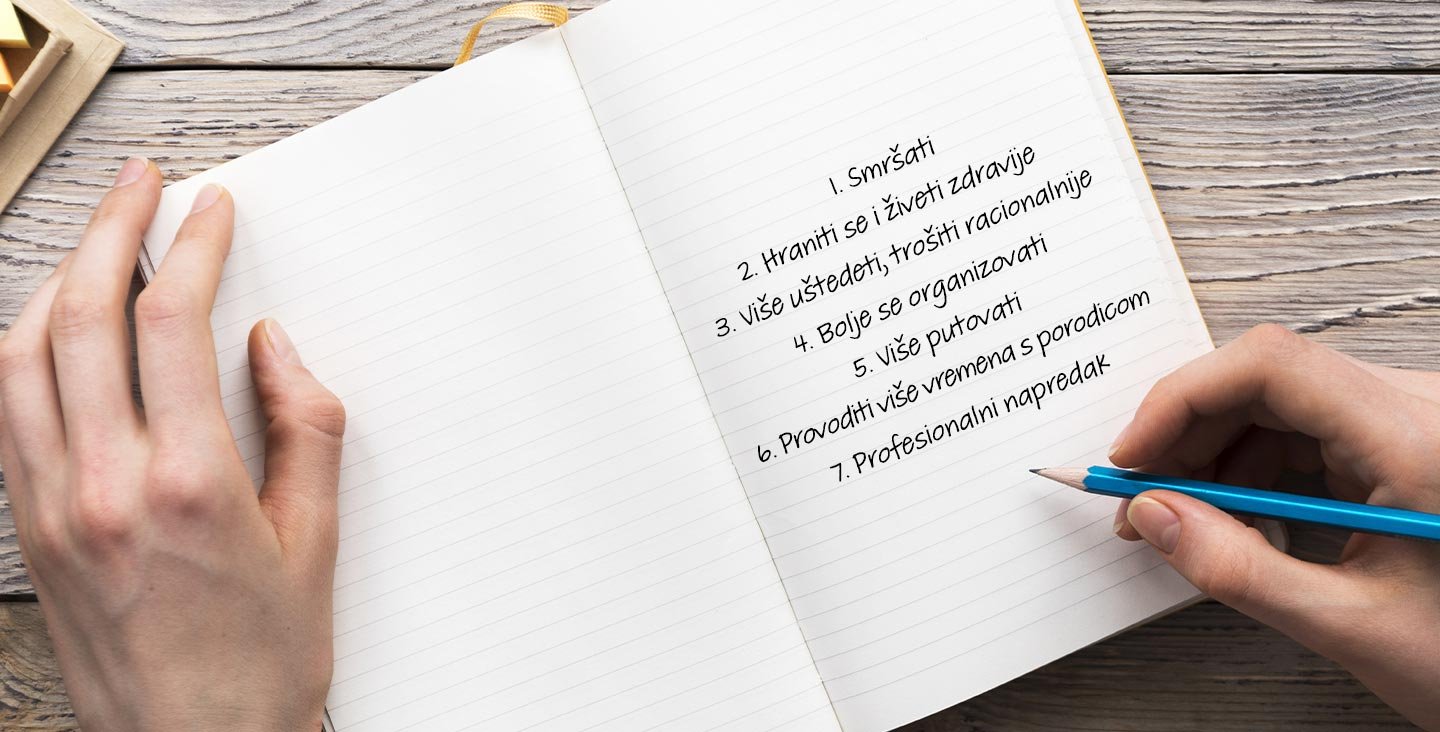 1. Smršati
2. Hraniti se i živeti zdravije
3. Više uštedeti, trošiti racionalnije
4. Bolje se organizovati
5. Više putovati
6. Provoditi više vremena s porodicom
7. Profesionalni napredak